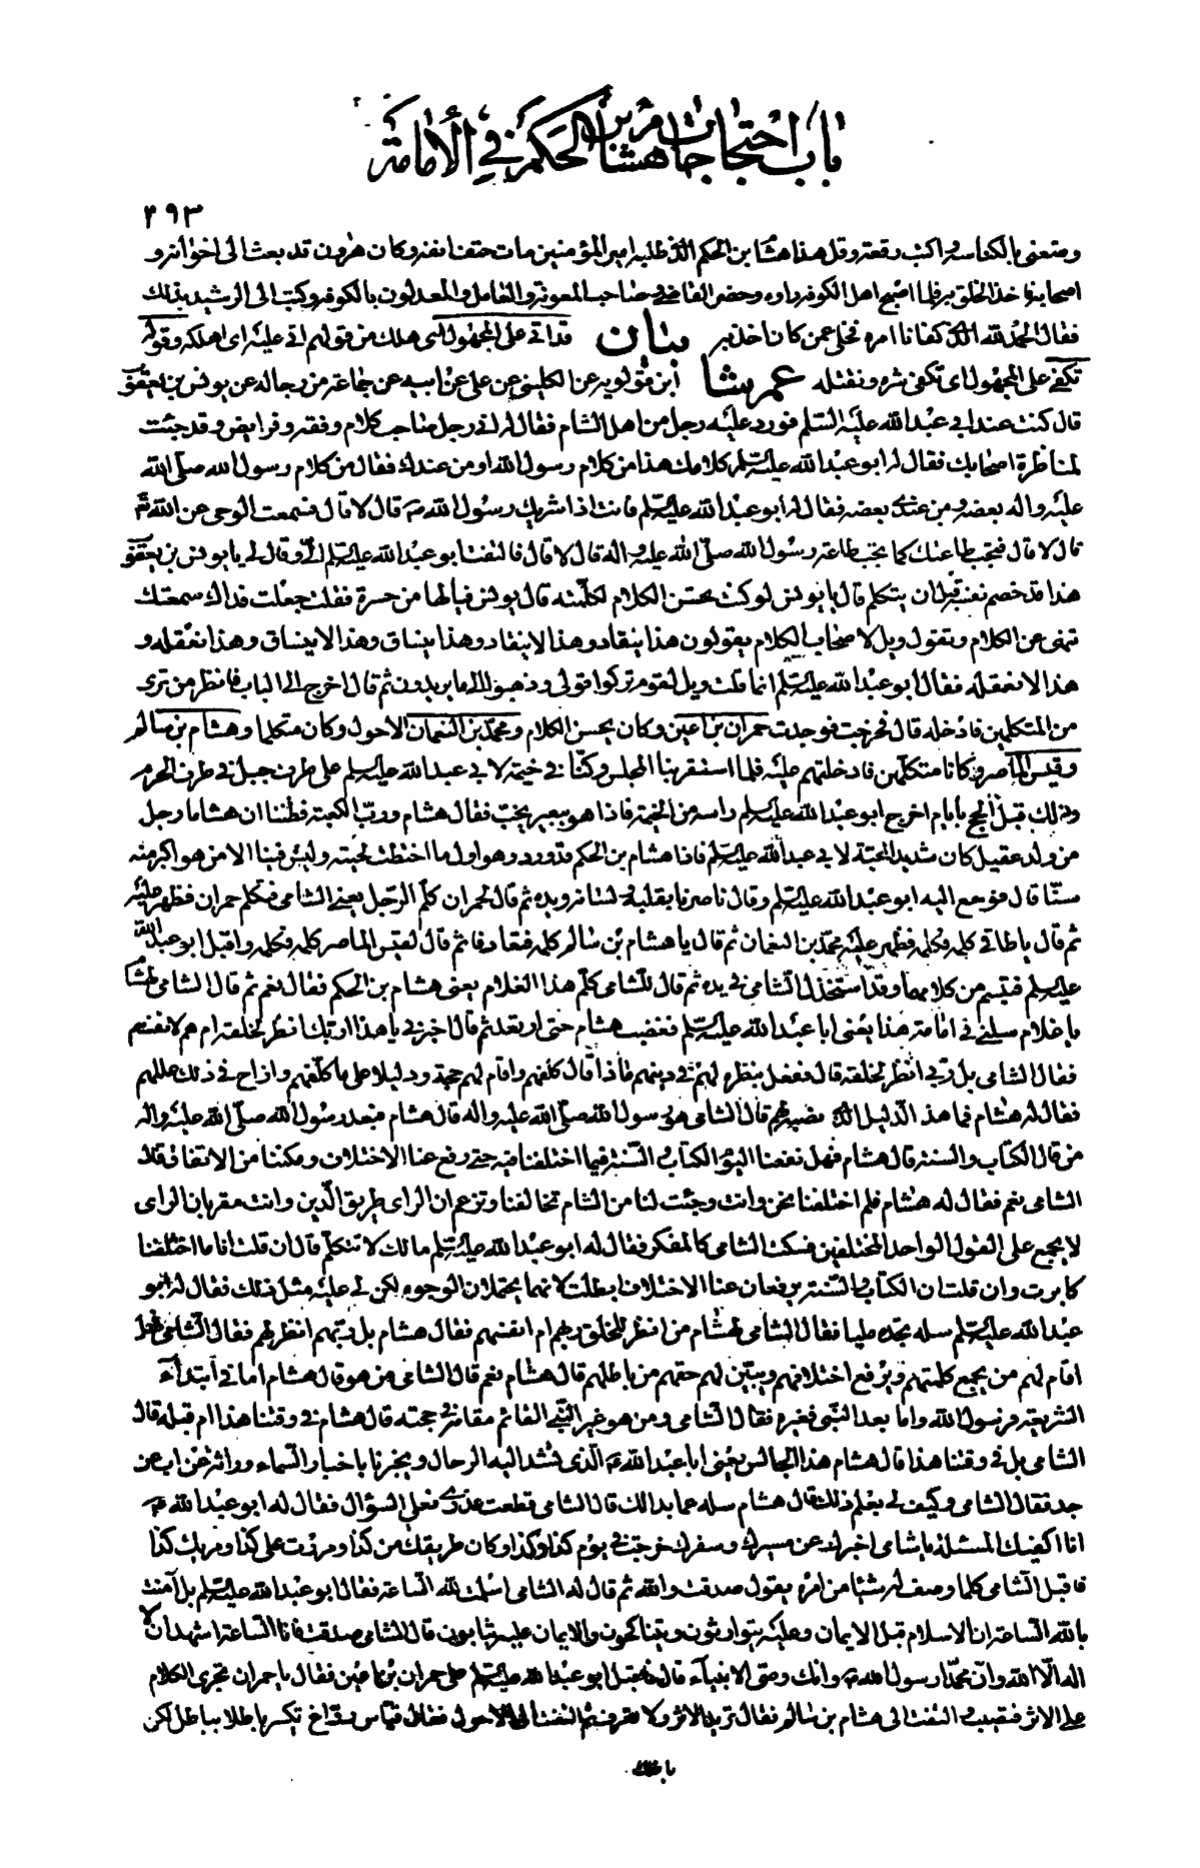 باب احتجاجات هشام بن الحكم في الامامة
٢٩٣
وضعني بالكناسة واكتب رقعة وقل هذا هشام بن الحكم الذي طلبه امير المؤمنين مات حتف انفه وكان هرون قد بعث الى اخوانه و
اصحابه فاخذ الخلق به فلما اصبح اهل الكوفة راوه وحضر القاضي وصاحب المعونة والعامل والمعدلون بالكوفة وكتب الى الرشيد بذلك
فقال الحمد لله الذي كفانا امره فخلى عمن كان اخذ به بيان قد اتى على المجهول اى هلك من قولهم اتى عليه اى اهلكه وقوله
تكفى على المجهول اى تكفى شره ونقتله عم شا ابن قولويه عن الكليني عن علي عن ابيه عن جماعة من رجاله عن يونس بن يعقوب
قال كنت عند ابي عبد الله عليه السلم فورد عليه رجل من اهل الشام فقال له اني رجل صاحب كلام وفقه وفرايض وقد جئت
لمناظرة اصحابك فقال له ابو عبد الله عليه السلم كلامك هذا من كلام رسول الله او من عندك فقال من كلام رسول الله صلى الله
عليه واله بعضه ومن عندي بعضه فقال له ابو عبد الله عليه السلم فانت اذا شريك رسول الله ص قال لا قال فسمعت الوحي عن الله
قال لا قال فتجب طاعتك كما تجب طاعة رسول الله صلى الله عليه واله قال لا قال فالتفت ابو عبد الله عليه السلم الي وقال لي يا يونس بن يعقوب
هذا قد خصم نفسه قبل ان يتكلم قال يا يونس لو كنت تحسن الكلام لكلمته قال يونس فيا لها من حسرة فقلت جعلت فداك سمعتك
تنهى عن الكلام وتقول ويل لاصحاب الكلام يقولون هذا ينقاد وهذا لا ينقاد وهذا ينساق وهذا لا ينساق وهذا نعقله و
هذا لا نعقله فقال ابو عبد الله عليه السلم انما قلت ويل لقوم تركوا قولي وذهبوا الى ما يريدون ثم قال اخرج الى الباب فانظر من ترى
من المتكلمين فادخله قال فخرجت فوجدت حمران بن اعين وكان يحسن الكلام ومحمد بن النعمان الاحول وكان متكلما وهشام بن سالم
وقيس الماصر وكانا متكلمين فادخلتهم عليه فلما استقر بنا المجلس وكنا في خيمة لابي عبد الله عليه السلم على طرف جبل في طرف الحرم
وذلك قبل الحج بايام اخرج ابو عبد الله عليه السلم راسه من الخيمة فاذا هو ببعير يخب فقال هشام ورب الكعبة فظننا ان هشاما رجل
من ولد عقيل كان شديد المحبة لابي عبد الله عليه السلم فاذا هشام بن الحكم قد ورد وهو اول ما اختطت لحيته وليس فينا الا من هو اكبر منه
سنا قال فوسع اليه ابو عبد الله عليه السلم وقال ناصرنا بقلبه ولسانه ويده ثم قال لحمران كلم الرجل يعني الشامي فتكلم حمران فظهر عليه
ثم قال يا طاقي كلمه فكلمه فظهر عليه محمد بن النعمان ثم قال يا هشام بن سالم كلمه فتعارفا ثم قال لقيس الماصر كلمه فكلمه واقبل ابو عبد الله
عليه السلم فتبسم من كلامهما وقد استخذل الشامي في يده ثم قال للشامي كلم هذا الغلام يعني هشام بن الحكم فقال نعم ثم قال الشامي لهشام
يا غلام سلني في امامة هذا يعني ابا عبد الله عليه السلم فغضب هشام حتى ارتعد ثم قال اخبرني يا هذا اربك انظر لخلقه ام هم لانفسهم
فقال الشامي بل ربي انظر لخلقه قال ففعل بنظره لهم في دينهم ماذا قال كلفهم واقام لهم حجة ودليلا على ما كلفهم وازاح في ذلك عللهم
فقال له هشام فما هذا الدليل الذي نصبه لهم قال الشامي هو رسول الله صلى الله عليه واله قال هشام فبعد رسول الله صلى الله عليه واله
من قال الكتاب والسنة قال هشام فهل نفعنا اليوم الكتاب والسنة فيما اختلفنا فيه حتى رفع عنا الاختلاف ومكننا من الاتفاق قال
الشامي نعم فقال له هشام فلم اختلفنا نحن وانت وجئت لنا من الشام تخالفنا وتزعم ان الراى طريق الدين وانت مقر بان الراى
لا يجمع على القول الواحد المختلفين فسكت الشامي كالمفكر فقال له ابو عبد الله عليه السلم ما لك لا تتكلم قال ان قلت انا ما اختلفنا
كابرت وان قلت ان الكتاب والسنة يرفعان عنا الاختلاف ابطلت لانهما يحتملان الوجوه لكن لي عليه مثل ذلك فقال له ابو
عبد الله عليه السلم سله تجده مليا فقال الشامي لهشام من انظر للخلق ربهم ام انفسهم فقال هشام بل ربهم انظر لهم فقال الشامي فهل
اقام لهم من يجمع كلمتهم ويرفع اختلافهم ويبين لهم حقهم من باطلهم قال هشام نعم قال الشامي من هو قال هشام اما في ابتداء
الشريعة فرسول الله واما بعد النبي فغيره فقال الشامي ومن هو غير النبي القائم مقامه في حجته قال هشام في وقتنا هذا ام قبله قال
الشامي بل في وقتنا هذا قال هشام هذا الجالس يعني ابا عبد الله ع الذي تشد اليه الرحال ويخبرنا باخبار السماء وراثة عن اب عن
جد فقال الشامي وكيف لي بعلم ذلك قال هشام سله عما بدا لك قال الشامي قطعت عذري فعلي السؤال فقال له ابو عبد الله ع
انا اكفيك المسئلة يا شامي اخبرك عن مسيرك وسفرك خرجت في يوم كذا وكذا وكان طريقك من كذا ومررت على كذا ومر بك كذا
فاقبل الشامي كلما وصف له شيئا من امره يقول صدقت والله ثم قال له الشامي اسلمت لله الساعة فقال ابو عبد الله عليه السلم بل آمنت
بالله الساعة ان الاسلام قبل الايمان وعليه يتوارثون ويتناكحون والايمان عليه يثابون قال الشامي صدقت فانا الساعة اشهد ان لا
اله الا الله وان محمدا رسول الله ص وانك وصي الانبياء قال فاقبل ابو عبد الله عليه السلم على حمران بن اعين فقال يا حمران تجري الكلام
على الاثر فتصيب والتفت الى هشام بن سالم فقال تريد الاثر ولا تعرف ثم التفت الى الاحول فقال قياس رواغ تكسر باطلا بباطل لكن
باطلك